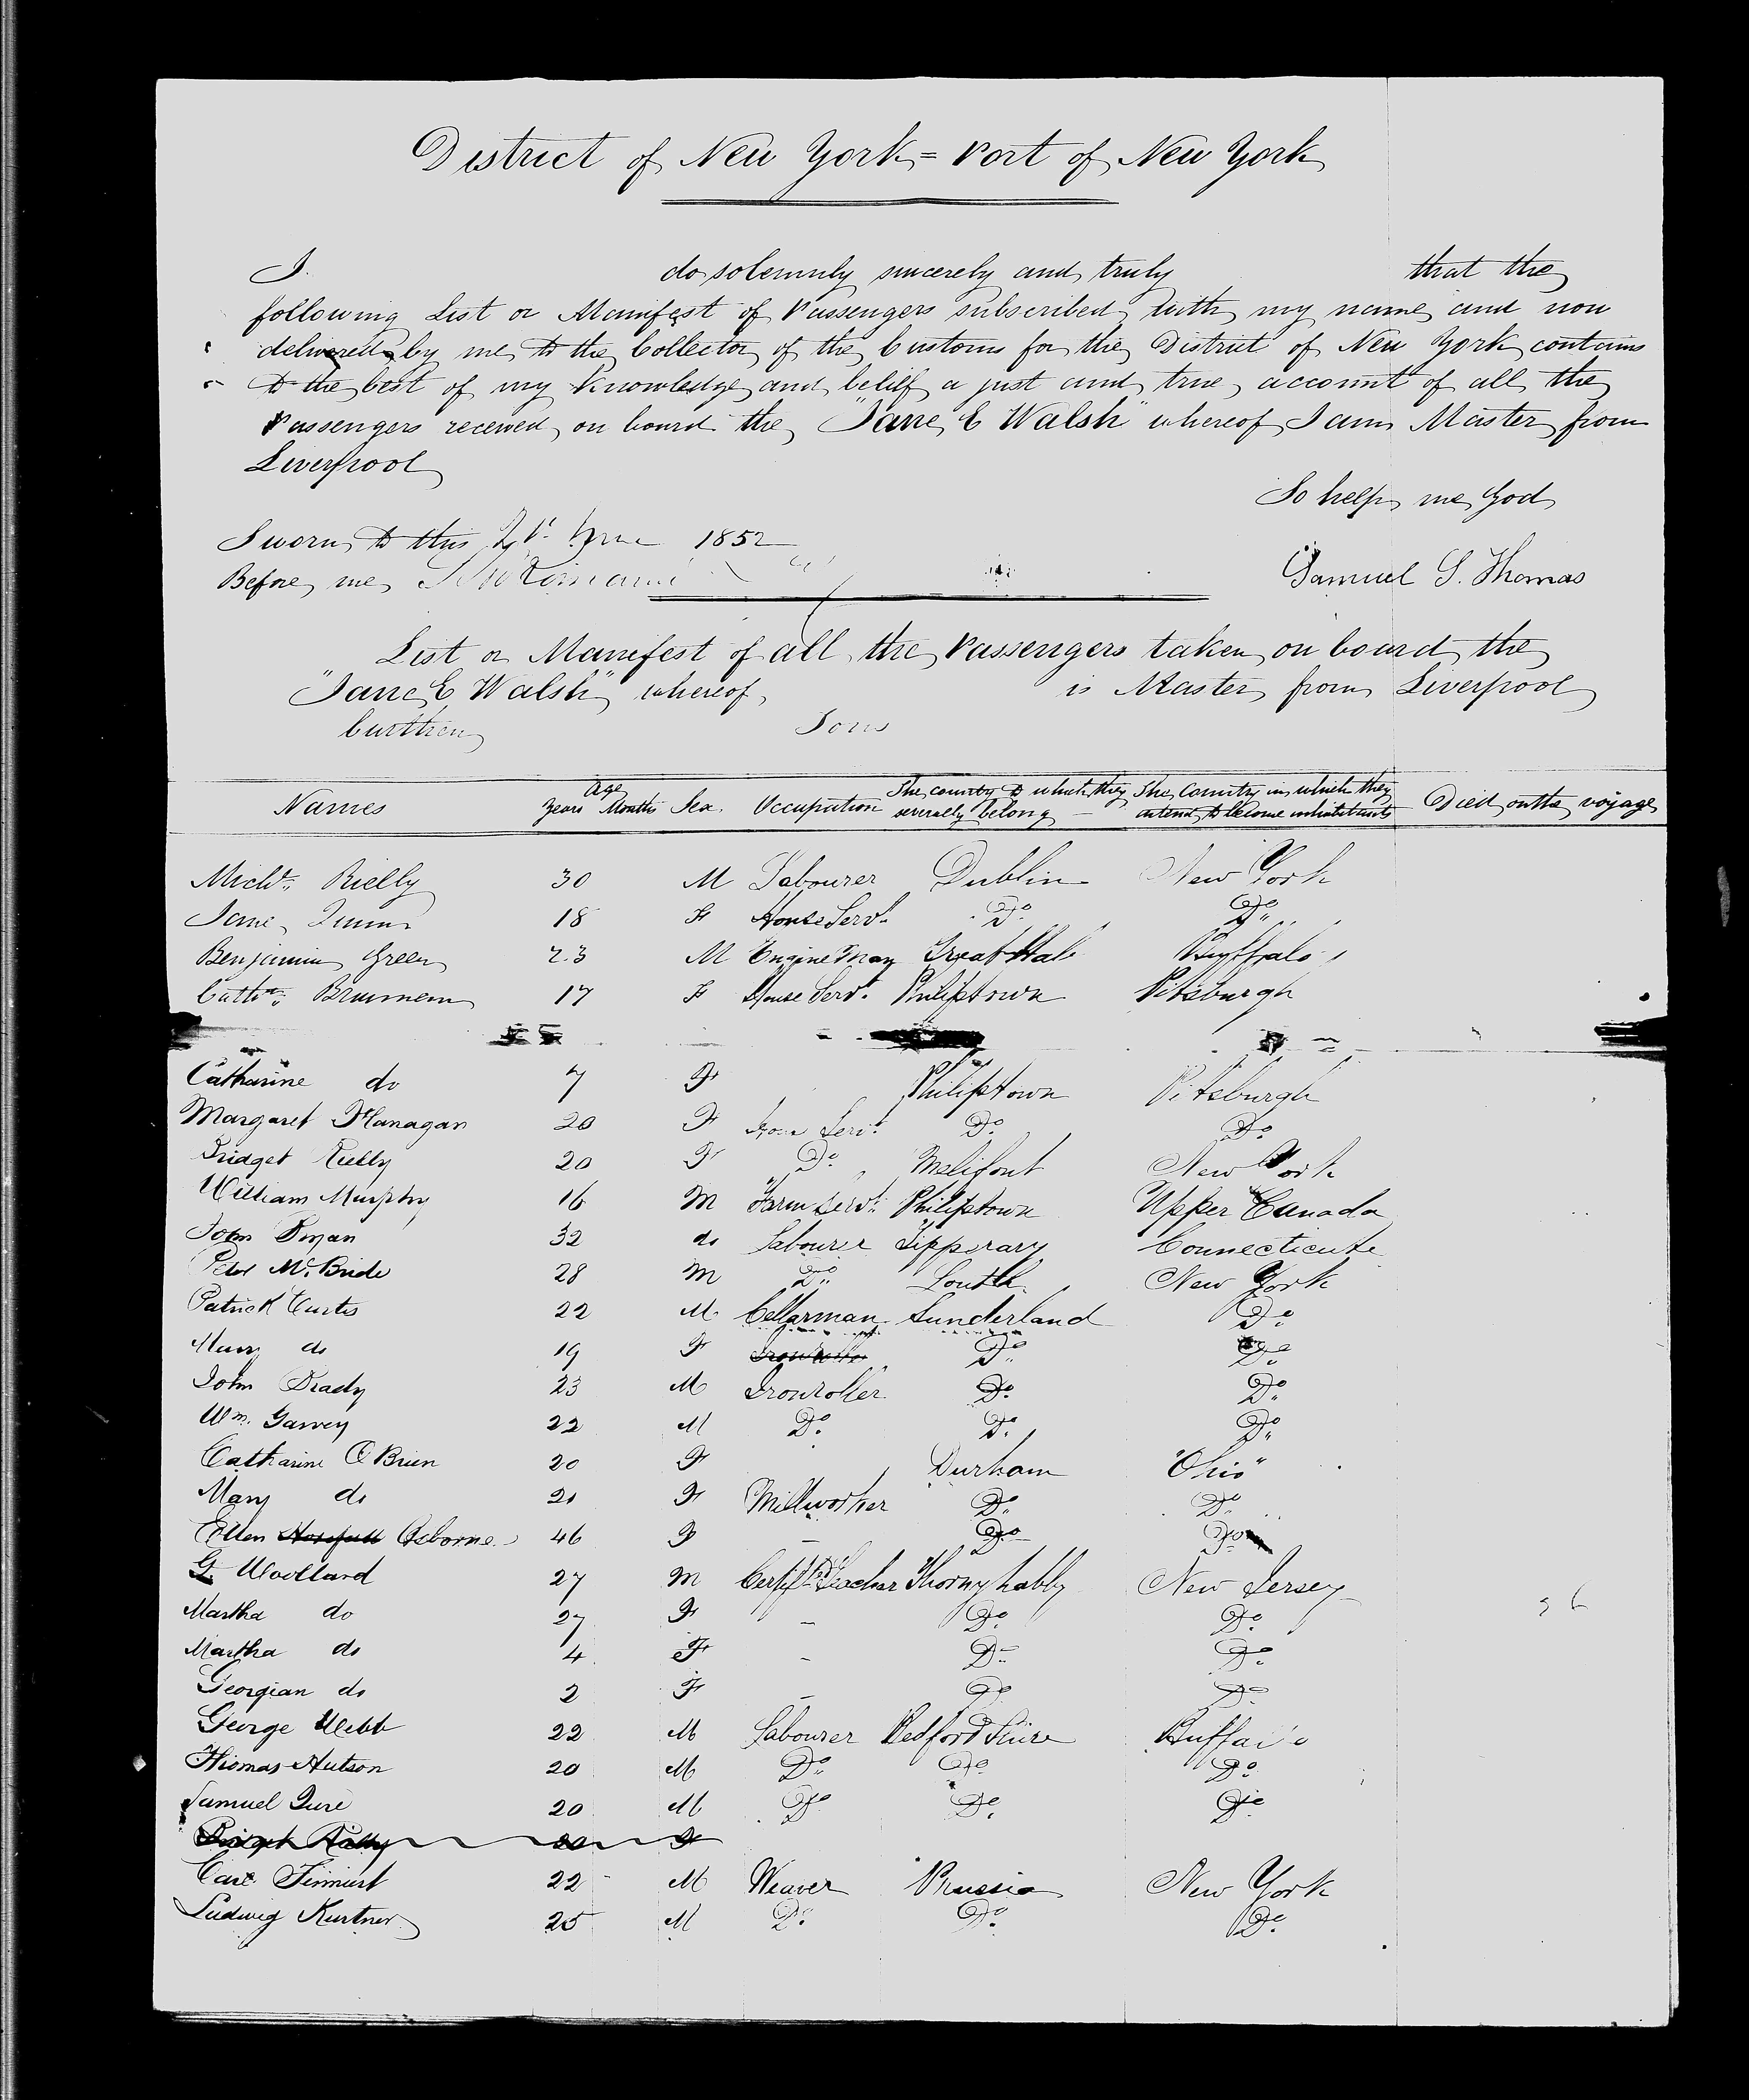 District of New York = Port of New York
I do solemnly sincerely and truly that the
following List or Manifest of Passengers subscribed with my name and now
delivered by me to the Collector of the Customs for the District of New York contains
to the best of my knowledge and belief a just and true account of all the
Passengers received on board the "Jane E Walsh" whereof I am Master from
Liverpool
So help me God
Sworn to this 1852
Before me
Samuel S. Thomas
List or Manifest of all the Passengers taken on board the
"Jane E Walsh" whereof is Master from Liverpool
burthen Tons
Names Age Years Months Sex Occupation The country to which they severally belong The Country in which they intend to become inhabitants Died on the voyage
Michl. Rielly 30 M Labourer Dublin New York
Jane Quinn 18 F House Servt. Do. Do.
Benjamin Green 23 M Engine Man Great Buffalo
Cathe. 17 F House Servt. Philipstown Pitsburgh
Catharine do 7 F Philipstown Pitsburgh
Margaret Flanagan 20 F House Servt. Do. Do.
Bridget Rielly 20 F Do. Melifont New York
William Murphy 16 M Farm Servt. Philipstown Upper Canada
John 32 do Labourer Tipperary Connecticute
Peter McBride 28 M Do. Louth New York
Patrick Curtis 22 M Cellarman Sunderland Do.
Mary do 19 F Do. Do.
John Brady 23 M Ironroller Do. Do.
Wm. Garvey 22 M Do. Do. Do.
Catharine O Brien 20 F Durham "Ohio"
Mary do 21 F Millworker Do. Do.
Ellen Osborne 46 F – Do. Do.
G. Woollard 27 M Certif Teacher New Jersey
Martha do 27 F – Do. Do.
Martha do 4 F – Do. Do.
Georgian do 2 F – Do. Do.
George Webb 22 M Labourer Bedford Shire Buffalo
Thomas Hutson 20 M Do. Do. Do.
Samuel 20 M Do. Do. Do.
Bridget Rielly 20 F
Carl 22 M Weaver Prussia New York
Ludwig Kurtner 25 M Do. Do. Do.